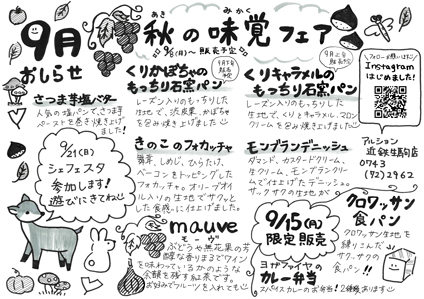 9月
おしらせ
あき みかく
秋の味覚フェア
9/6(日)〜販売予定
さつま芋塩バター
人気の塩パンで、さつま芋
ペーストを巻き焼き上げ
ました!
くりかぼちゃの
もっちり石窯パン
レーズン入りのもっちりした
生地で、渋皮栗、かぼちゃ
を包み焼き上げました
くりキャラメルの
もっちり石窯パン
レーズン入りのもっちりした
生地で、くりとキャラメル、マロン
クリームを包み焼き上げました
フォローお願いします
Instagram
はじめました!
アルション
近鉄生駒店
0743
(72)2962
9/21(日)
シェフェスタ
参加します!
遊びにきてね
きのこのフォカッチャ
舞茸、しめじ、ひらたけ、
ベーコンをトッピングした
フォカッチャ。オリーブオイ
ル入りの生地でサクッと
した食感に仕上げました。
モンブランデニッシュ
ダマンド、カスタードクリーム、
生クリーム、モンブランクリーム
で仕上げたデニッシュ。
サクサクの生地が
mauve
モーヴ
ぶどうや無花果の芳
醇な香りまるでワイン
を味わっているかのような
余韻を残す紅茶です。
お好みでフルーツを入れても
9/15(月)
限定販売
ヨガファイヤの
カレー弁当
スパイスカレーのお弁当!2種類あります
クロワッサン
食パン
クロワッサン生地を
練りこんだ
サクサクの
食パン!!